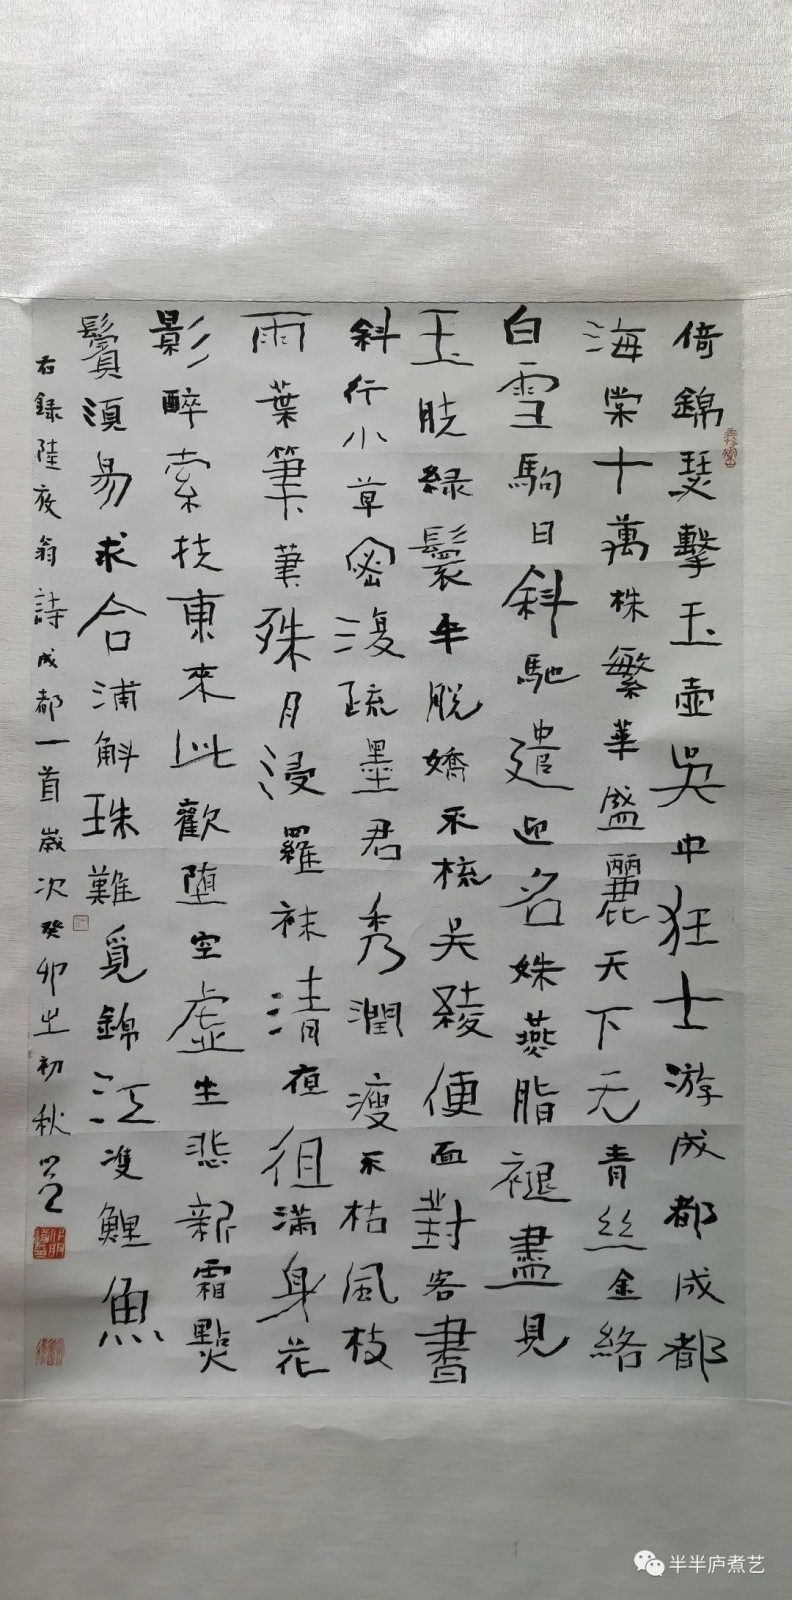 倚錦瑟擊玉壺吳中狂士游成都成都
海棠十萬株繁華盛麗天下无青丝金絡
白雪駒日斜馳遣迎名姝燕脂褪盡見
玉肤緑鬟半脫嬌不梳吳綾便面對客書
斜行小草密復疏墨君秀潤瘦不枯風枝
雨葉筆筆殊月浸羅袜清夜徂滿身花
影醉索扶東來此歡墮空虛坐悲新霜點
鬢須易求合浦斛珠難覓錦江双鯉魚
右録陸放翁詩成都一首歲次癸卯之初秋
半半庐煮艺